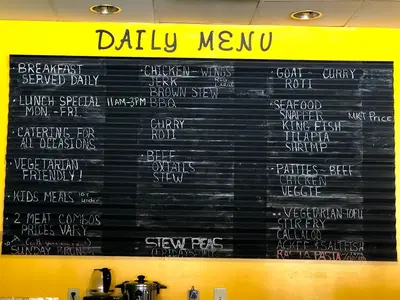 DAILY MENU
· BREAKFAST
SERVED DAILY
· LUNCH SPECIAL 11AM-3PM
MON.-FRI.
· CATERING FOR
ALL OCCASIONS
· VEGETARIAN
FRIENDLY!
· KIDS MEALS
· 2 MEAT COMBOS
PRICES VARY
SUNDAY
· CHICKEN - WINGS
JERK
BROWN STEW
BBQ
CURRY
ROTI
· BEEF
OXTAILS
STEW
STEW PEAS
· GOAT - CURRY
ROTI
· SEAFOOD
SNAPPER MKT Price
KING FISH
TILAPIA
SHRIMP
· PATTIES - BEEF
CHICKEN
VEGGIE
·· VEGETARIAN-TOFU
CALLALOO
PASTA